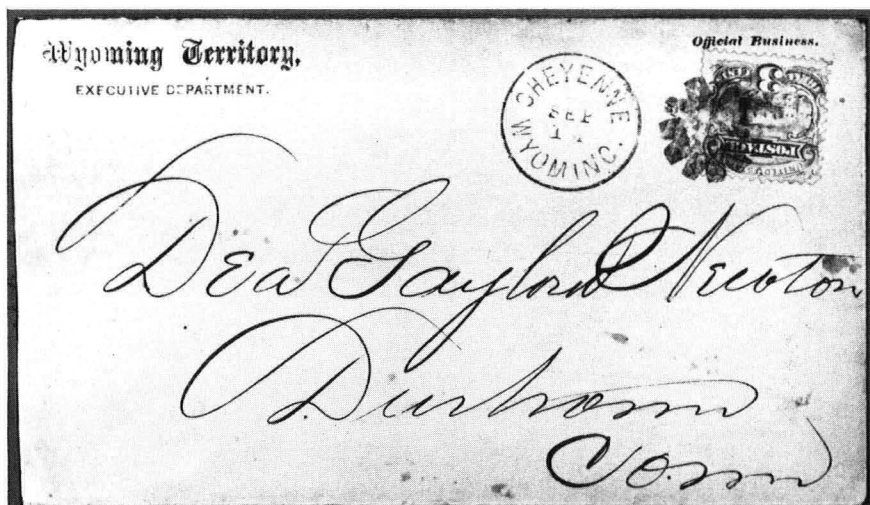 Wyoming Territory,
EXECUTIVE DEPARTMENT.
Official Business.
CHEYENNE
SEP
WYOMING.
3
POSTAGE
Dea Gaylord Newton
Durham
Conn